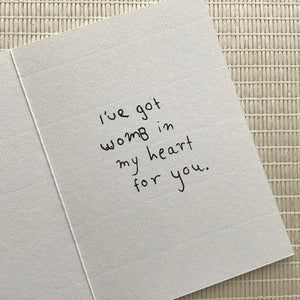 I've got
womb in
my heart
for you.